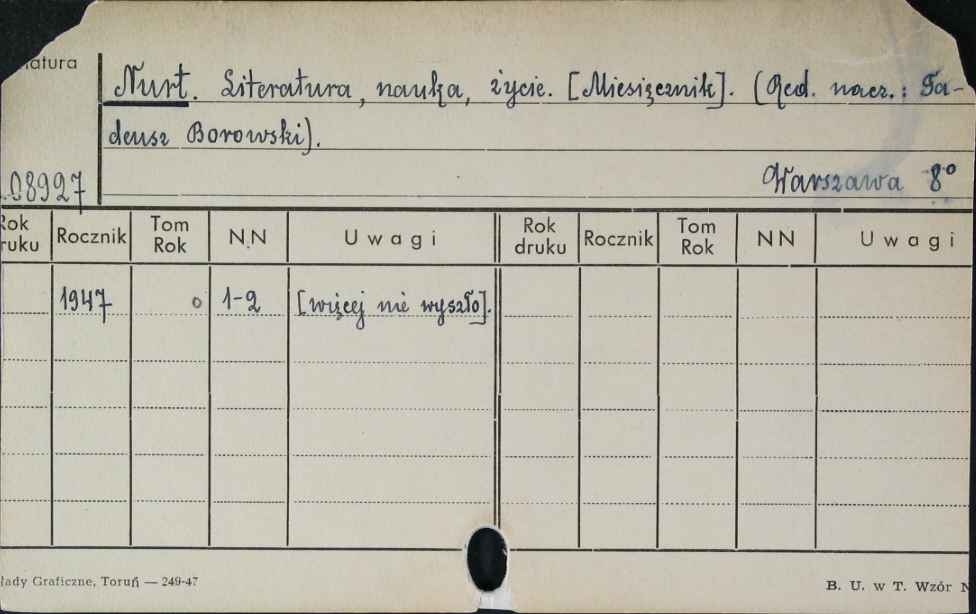 Nurt. Literatura, nauka, życie. [Miesięcznik]. (Red. nacz.: Ta-
deusz Borowski).
08927
Warszawa 8°
Rocznik Tom Rok NN Uwagi Rok druku Rocznik Tom Rok NN Uwagi
1947 0 1-2 [więcej nie wyszło].
Graficzne, Toruń — 249-47
B. U. w T. Wzór